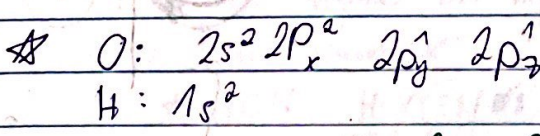 ☆ O: 2s² 2Pₓ² 2p_y¹ 2p_z¹
H: 1s²